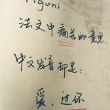 Agoni
法文中痛苦的意思
中文发音却是:
爱，过你